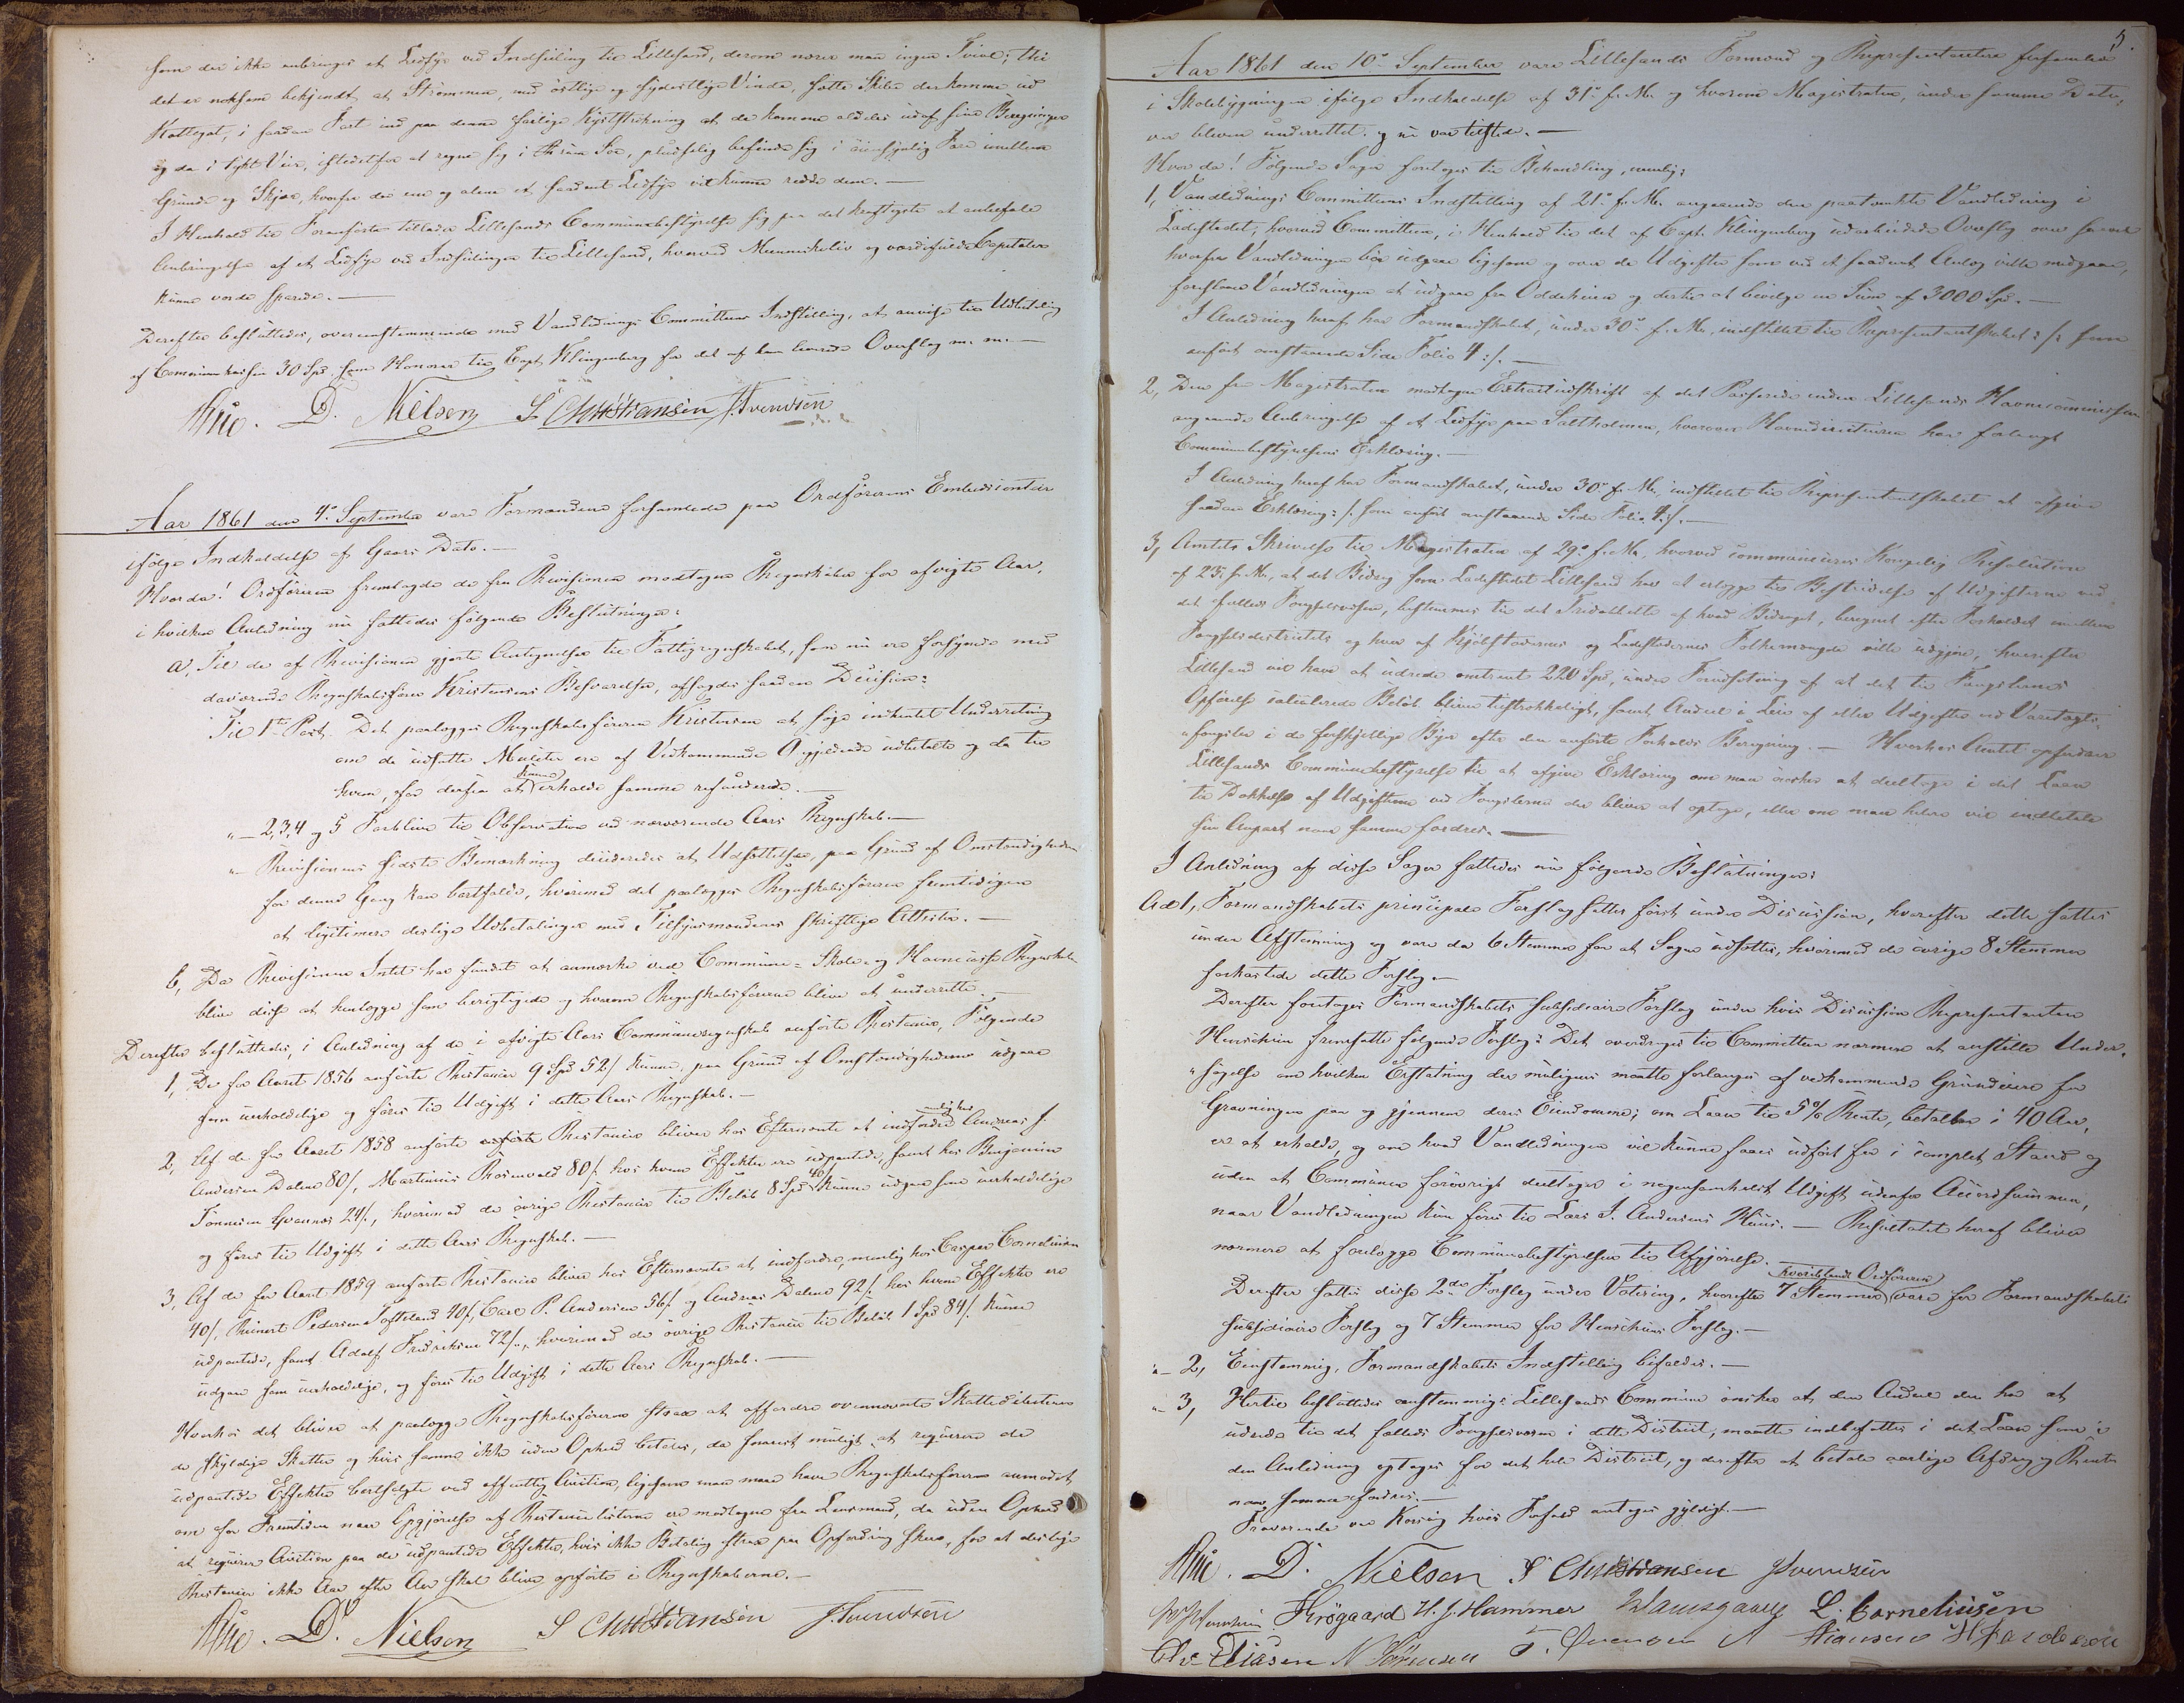 som der ikke anbringes et Ledfyr ved Indseiling til Lillesand, derom nærer man ingen Tvivl; thi
det er noksom bekjendt at Strømmen, med östlige og sydostlige Vinde, sætte Skibe der komme ud
Kattegat, i saadan Fart ind paa denne farlige Kyststrækning at de komme aldeles ud af sine Beregninger
og da i tykt Veir, istedetfor at regne sig i Søe, pludselig befinde sig i öiensynlig Fare imellem
Grunde og Skjær, hvorfra der ene og alene et saadant Ledfyr vil kunne redde dem. —
I Henhold til Foranførte tillader Lillesands Communebestyrelse sig paa det kraftigste at anbefale
Anbringelse af et Ledfyr ved Indseilingen til Lillesand, hvorved Menneskeliv og værdifulde Capitaler
kunne vorde sparede. —
Derefter besluttedes, overeensstemmende med Vandlednings Committeens Indstilling, at anvise til Udbetaling
af Communekassen 30 Spd. som Honorar til Capt. Klingenberg for det af ham leverede Overslag m. m. —
D. Nielsen S Christiansen J. Svendsen
Aar 1861 den 4de September vare Formændene forsamlede paa Ordförerens Embedscontoir
ifölge Indkaldelse af Gaars Dato. —
Hvorda! Ordföreren fremlagde de fra Revisionen modtagne Regnskaber for afvigte Aar,
i hvilken Anledning nu fattedes fölgende Beslutninger:
a, Til de af Revisionen gjorte Antegnelser til Fattigregnskabet, som nu ere forsynede med
daværende Regnskabsförer Kristensens Besvarelse, afsagdes saadan Decision:
Til 1ste Post. Det paalægges Regnskabsföreren Kristensen at söge indhentet Underretning
om de udsatte Mulcter ere af Vedkommende Ogjeldende udbetalte og da til
hvem, for derfra at kunne erholde samme refunderede. —
" — 2, 3, 4 og 5 Forblive til Observation ved nærværende Aars Regnskab. —
" — Revisionens sidste Bemærkning decideredes at Udsættelse, paa Grund af Omstændigheden
for denne Gang kan bortfalde, hvorimod det paalægges Regnskabsföreren fremtidigen
at legitimere deslige Udbetalinger med Tilsynsmændenes skriftlige Attester. —
b, Da Revisionen Intet har fundet at anmærke ved Commune- Skole- og Havnecasse Regnskab
bliver disse at henlægge som berigtigede og hvorom Regnskabsförerne bliver at underrette. —
Derefter besluttedes, i Anledning af de i afvigte Aars Communeregnskab anförte Restancer, Fölgende
1, De for Aaret 1856 anförte Restancer 9 Spd 52 ß kunne, paa Grund af Omstændighederne udgaae
som uerholdelige og föres til Udgift i dette Aars Regnskab. —
2, Af de for Aaret 1858 anförte Restancer bliver hos Efternævnte at indfordre nemlig hos Andreas J.
Andersen Dalene 80 ß, Martinius Rosenvold 80 ß hos hvem Effekter ere udpantede, samt hos Benjamin
Tönnesen 24 ß, hvorimod de övrige Restancer til Belöb 8 Spd 40 ß kunne udgaae som uerholdelige
og föres til Udgift i dette Aars Regnskab. —
3, Af de for Aaret 1859 anförte Restancer bliver hos Efternævnte at indfordre, nemlig hos Casper Cornelius
40 ß, Reinert Pedersen Tofteland 40 ß, Carl P. Andersen 56 ß og Andreas Dalene 92 ß hos hvem Effekter ere
udpantede, samt Adolf Fredriksen 72 ß, hvorimod de övrige Restancer til Belöb 1 Spd 84 ß kunne
udgaae som uerholdelige, og föres til Udgift i dette Aars Regnskab. —
Hvorhos det bliver at paalægge Regnskabsföreren strax at affordre ovennævnte Skattedebitorer
de skyldige Skatter og hvis samme ikke uden Ophold betales, da snarest muligt at requirere de
udpantede Effekter bortsolgte ved offentlig Auction, ligesom man maa have Regnskabsföreren anmodet
om for Fremtiden naar Opgjörelse af Restancelisterne ere modtagne fra Lensmand, da uden Ophold
at requirere Auction paa de udpantede Effekter, hvis ikke Betaling strax paa Opfordring skeer, for at deslige
Restancer ikke Aar efter Aar skal blive opförte i Regnskaberne. —
D. Nielsen S Christiansen J. Svendsen
5.
Aar 1861 den 10de September vare Lillesands Formænd og Repræsentanter forsamlede
i Skolebygningen ifölge Indkaldelse af 31te f. M. og hvorom Magistraten, under samme Dato,
var bleven underrettet. og nu var tilstede. —
Hvor da! Fölgende Sager foretoges til Behandling, nemlig:
1, Vandlednings Committeens Indstilling af 21de f. M. angaaende den paatænkte Vandledning i
Ladestedet; hvorved Committeen, i Henhold til det af Capt. Klingenberg udarbeidede Overslag over
hvorfra Vandledningen bör udgaae ligesom og over de Udgifter som ved et saadant Anlæg ville medgaae,
foreslaaer Vandledningen at udgaae fra Oddekleiven og dertil at bevilge en Sum af 3000 Spd. —
I Anledning heraf har Formandskabet, under 30te f. M., indstillet til Repræsentantskabet :/: som
anfört omstaaende Side Folio 4 :/. —
2, Den fra Magistraten modtagne Extractudskrift af det Passerede under Lillesands Havnecommission
angaaende Anbringelse af et Ledfyr paa Saltholmen, hvorover Havnedirecteuren har forlangt
Communebestyrelsens Erklæring. —
I Anledning heraf har Formandskabet, under 30te f. M. indstillet til Repræsentantskabet at afgive
saadan Erklæring :/: som anfört omstaaende Side Folio 4 :/. —
3, Amtets Skrivelse til Magistraten af 29de f. M. hvorved communiceres Kongelig Resolution
af 23 f. M., at det Bidrag som Ladestedet Lillesand har at erlægge til Bestridelse af Udgifterne ved
det fælleds Fængselsvæsen, bestemmes til det Tredobbelte af hvad Bidraget, beregnet efter Forholdet imellem
Fængselsdistrictets og hver af Kjöbstædernes og Ladestedernes Folkemængde ville udgjöre, hvorefter
Lillesand vil have at udrede omtrent 220 Spd, under Forudsætning af at det til Fængslernes
Opförelse calculerede Belöb bliver tilstrækkeligt, samt Andeel i Leie af eller Udgifter ved Varetægts-
fængsler i de forskjellige Byer efter den anförte Forholds Beregning. — Hvorhos Amtet opfordrer
Lillesands Communebestyrelse til at afgive Erklæring om man önsker at deeltage i det Laan
til Dækkelse af Udgifterne ved Fængslerne der bliver at optage, eller om man helere vil indbetale
sin Anpart naar samme fordres. —
I Anledning af disse Sager fattedes nu fölgende Beslutninger:
Ad 1, Formandskabets principale Forslag sattes först under Discussion, hvorefter dette sattes
under Afstemning og vare da 6 Stemmer for at Sagen udsættes, hvorimod de övrige 8 Stemmer
forkastede dette Forslag. —
Derefter foretoges Formandskabets subsidiaire Forslag under hvis Discussion Repræsentanten
Henschien fremsatte fölgende Forslag: Det overdrages til Committeen nærmere at anstille Under-
sögelse om hvilken Erstatning der muligens maatte forlanges af vedkommende Grundeiere for
Gravningen paa og gjennem deres Eiendomme; om Laan til 5% Rente, betalbar i 40 Aar,
er at erholde, og om hvad Vandledningen vil kunne faaes udfört for i complet Stand og
uden at Communen forövrigt deeltager i nogensomhelst Udgift udenfor Accordsummen,
naar Vandledningen kun föres til Lars J. Andersens Huus. — Resultatet heraf bliver
nærmere at forelægge Communebestyrelsen til Afgjörelse.
Derefter sattes disse 2de Forslag under Votering, hvorefter 7 Stemmer hvoriblandt Ordföreren vare for Formandskabets
subsidiaire Forslag og 7 Stemmer for Henschiens Forslag. —
" — 2, Eenstemmig, Formandskabets Indstilling bifaldes. —
" — 3, Hertil besluttedes eenstemmig: Lillesands Commune önsker at den Andeel den har at
udrede til det fælleds Fængselsvæsen i dette District, maatte indbefattes i det Laan som i
den Anledning optages for det hele District, og derefter at betale aarlige Afdrag og Renter
naar samme fordres. —
Fraværende var hvis Forfald antoges gyldigt. —
D. Nielsen S Christiansen J Svendsen
Krøgaard H. J. Hammer L. Corneliüsen
Eliasen N Sörensen T. Svendsen